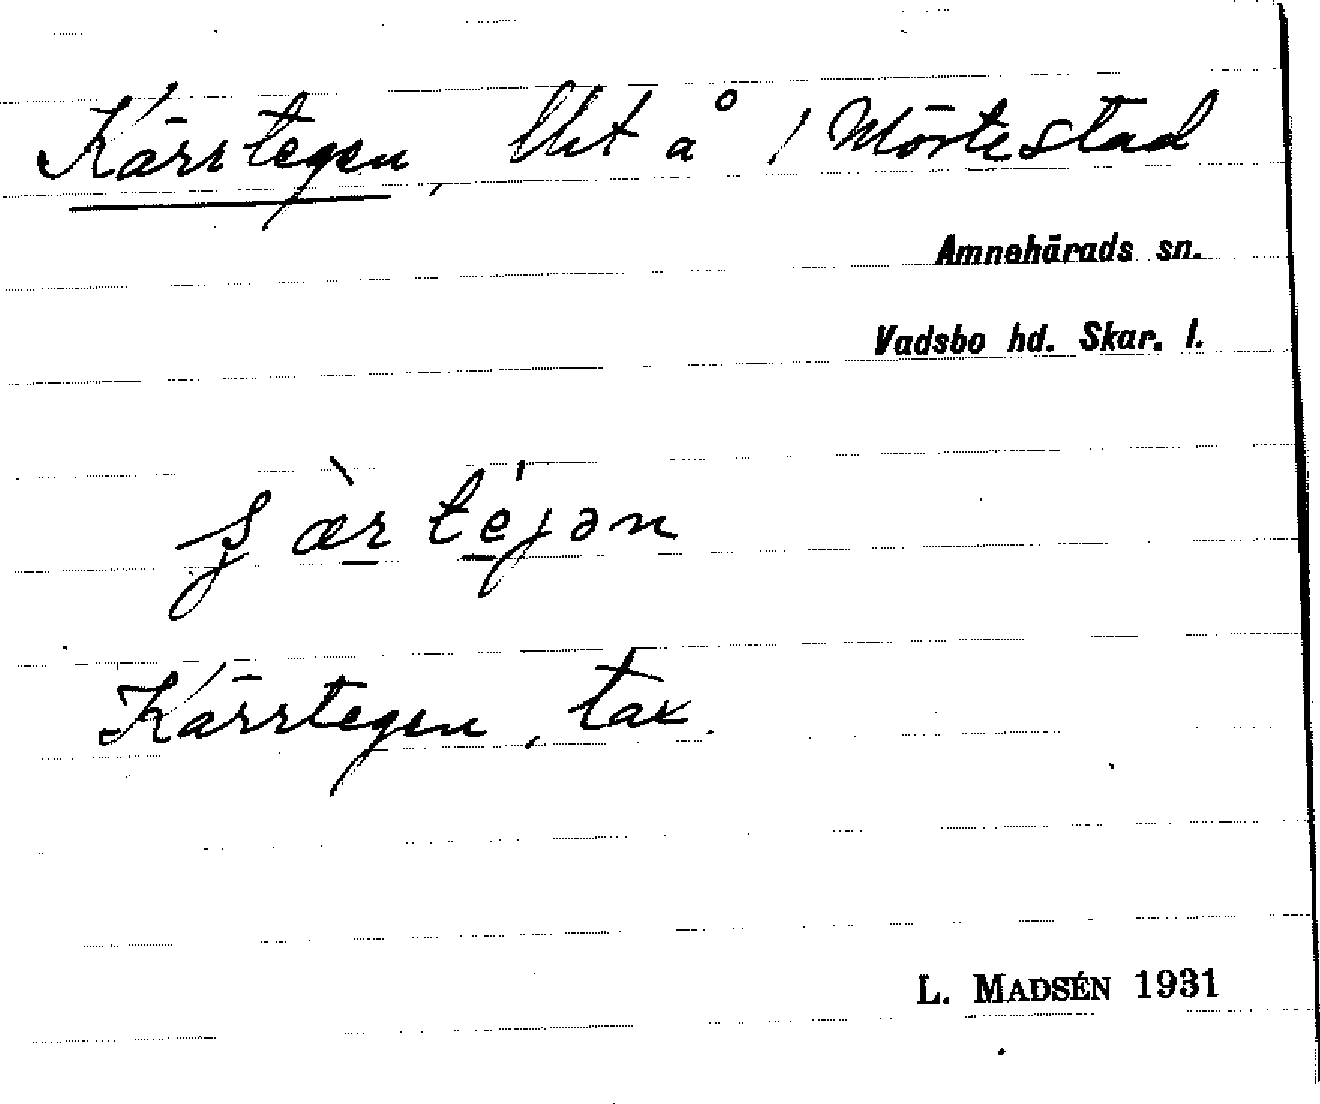 Kärrtegen, lht å 1 Mörtestad
Amnehärads sn.
Vadsbo hd. Skar. l.
Kärrtegen, tax.
L. MADSÉN 1931